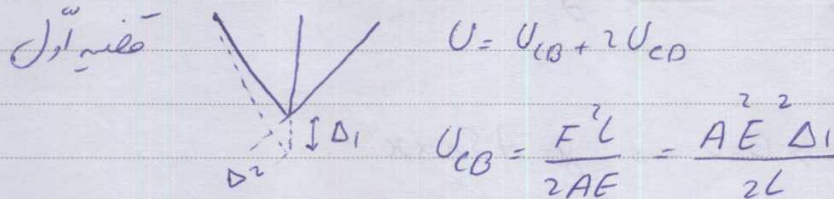 قضیه اول
U = U_CB + 2 U_CD
Δ1
Δ2
U_CB = F²L / 2AE = A E² Δ1² / 2L